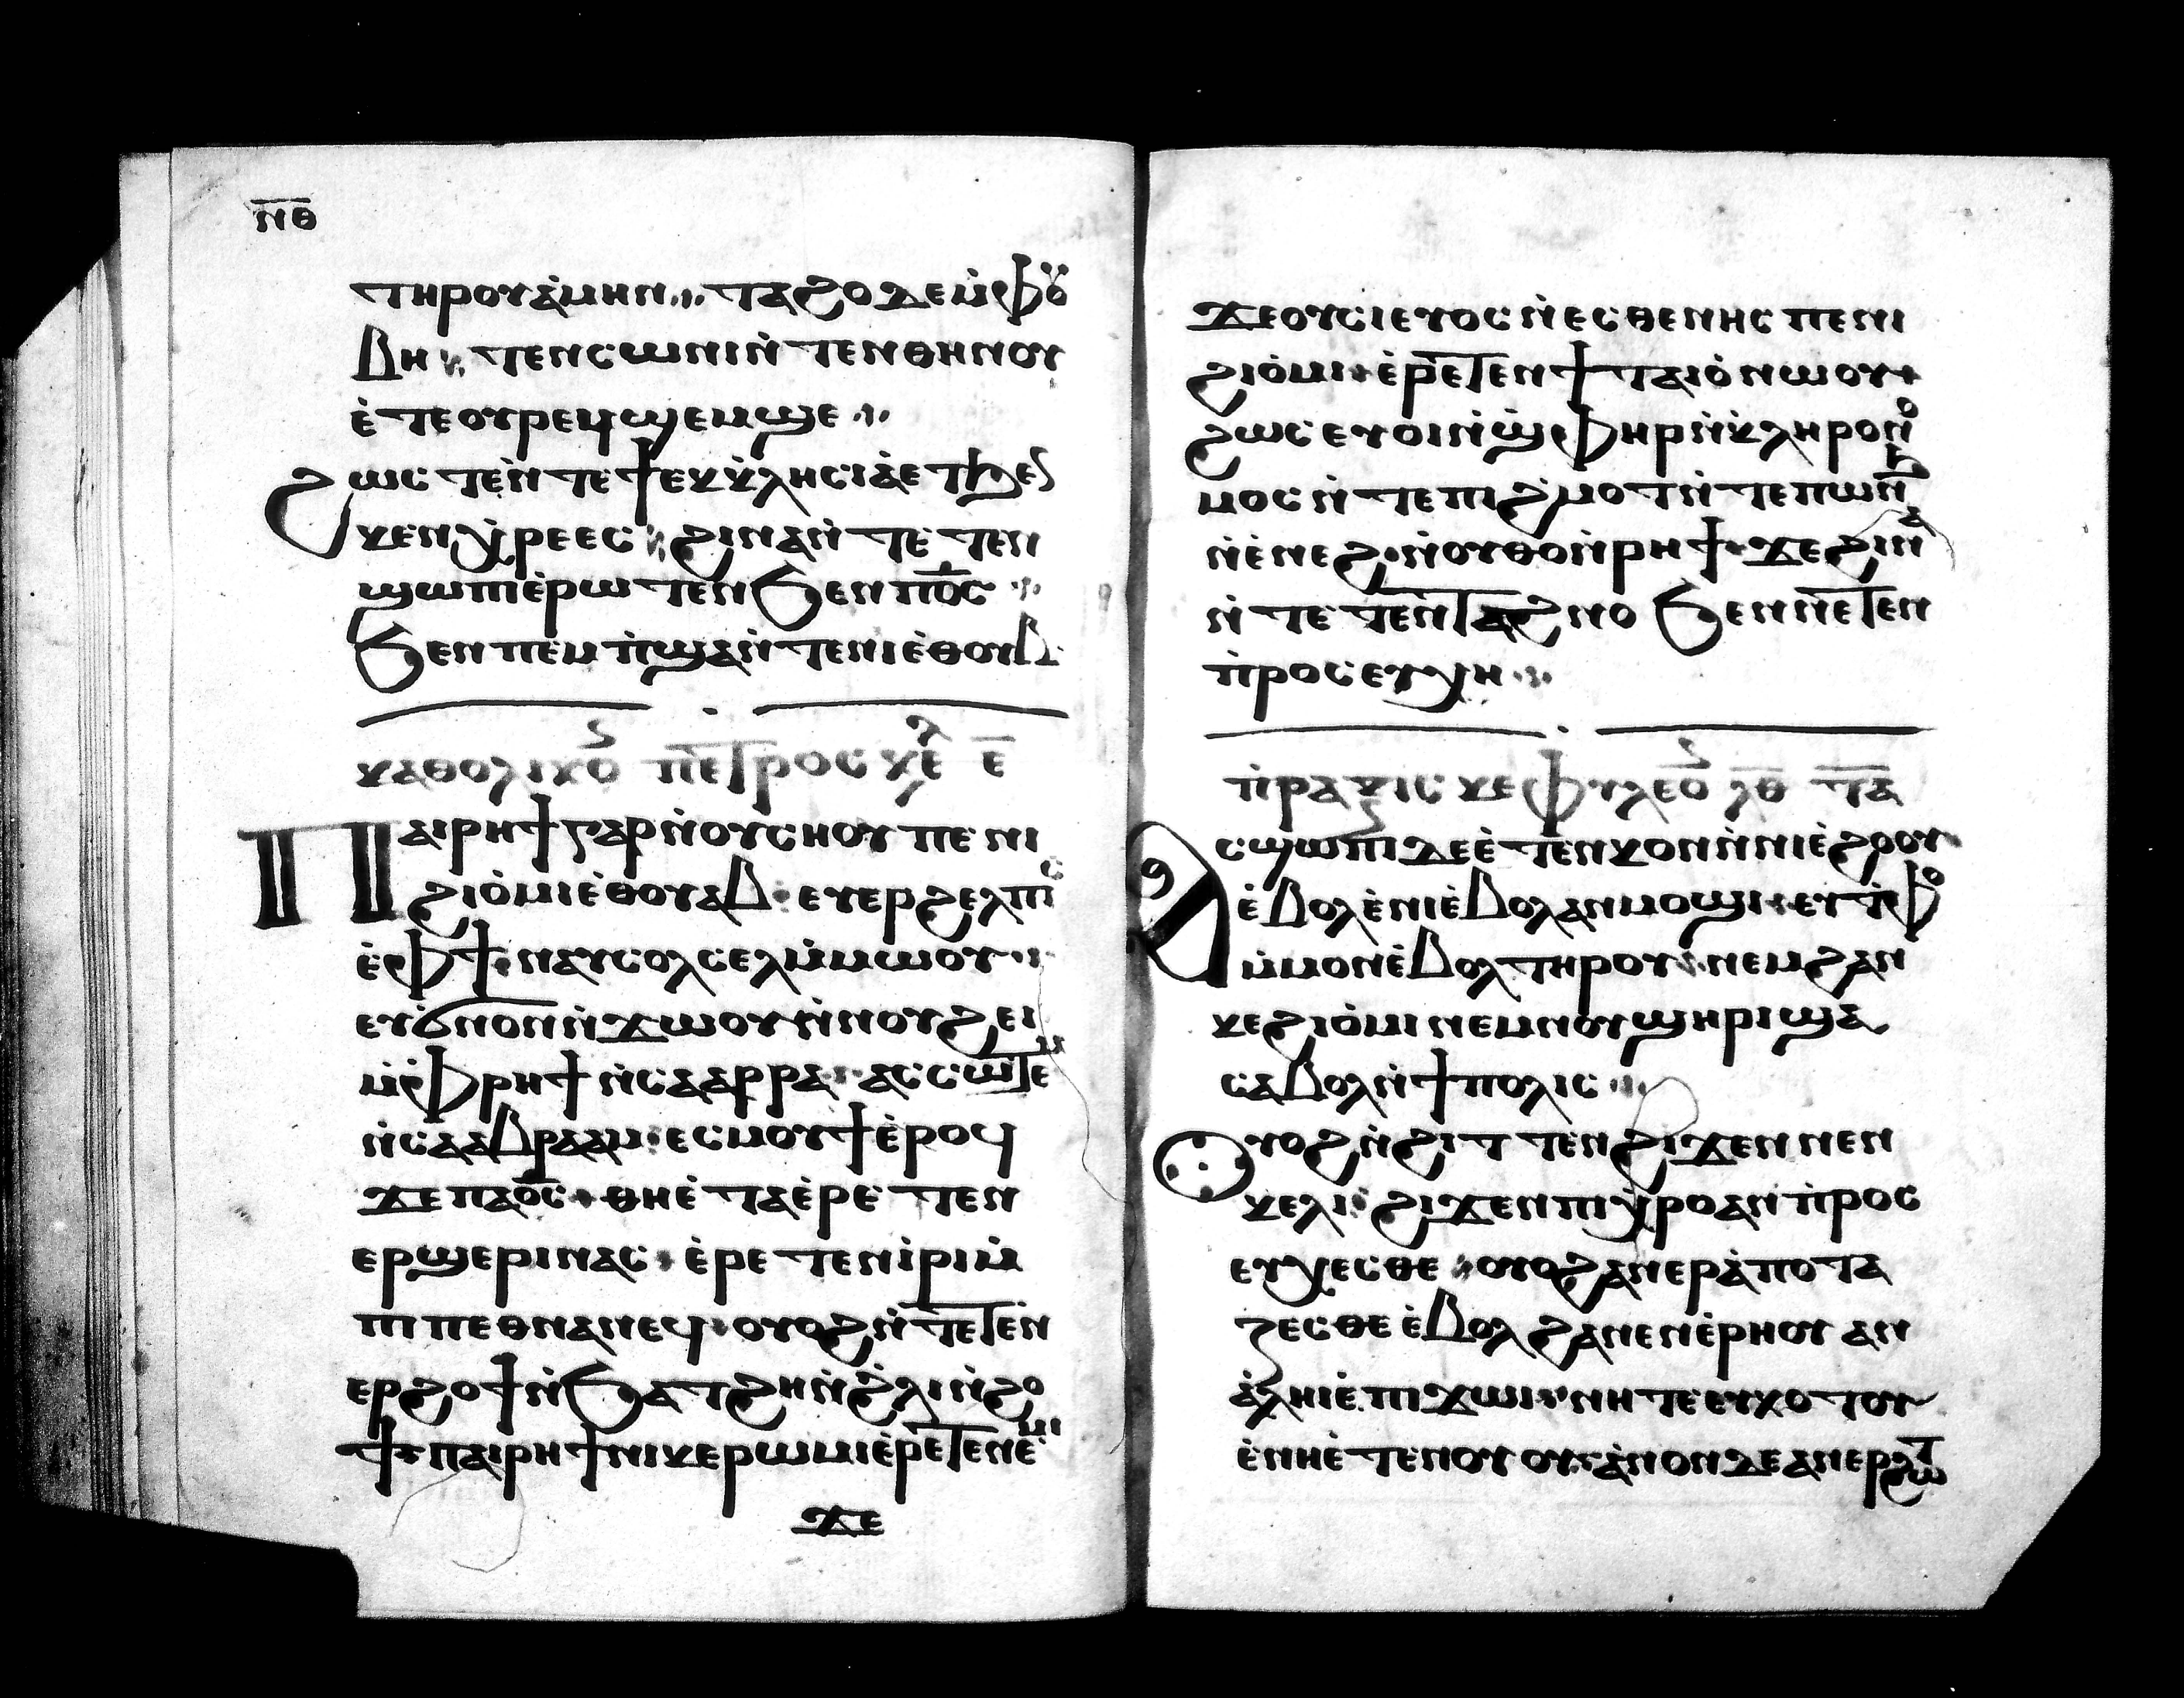 ⲛ̅ⲑ̅
ⲧⲏⲣⲟⲩⲁ̀ⲙⲏⲛ ⲧⲁϩⲟ ⲇⲉⲙ̀ⲫⲟⲩ
ⲃⲏ ⲧⲉⲛⲥⲱⲛⲓⲛ̀ⲧⲉⲛⲑⲏⲛⲟⲩ
ⲉ̀ⲧⲉⲟⲩⲣⲉϥϣⲉⲙϣⲉ
ϩⲱⲥ ⲧⲉⲛ̀ⲧⲉϯⲉⲕⲕ̀ⲗⲏⲥⲓⲁ̀ⲉⲧϧⲉⲛ
ⲕⲉⲛⲭ̀ⲣⲉⲉⲥ ϩⲓⲛⲁⲛ̀ⲧⲉⲧⲉⲛ
ϣⲱⲡⲉ̀ⲣⲱⲧⲉⲛ ϧⲉⲛⲡⲟ̅ⲥ̅
ϧⲉⲛⲡⲉⲙⲡ̀ϣⲁⲛ̀ⲧⲉⲛⲓⲉ̀ⲑⲟⲩⲃ
ⲕⲁⲑⲟⲗⲓⲕⲟⲛ ⲡⲉⲧⲣⲟⲥ ⲕⲉ ⲉ̅
ⲡⲁⲓⲣⲏϯⲅⲁⲣⲛ̀ⲟⲩⲥⲏⲟⲩ ⲡⲉ ⲛⲓ
ϩⲓⲟ̀ⲙⲓⲉ̀ⲑⲟⲩⲁⲃ ⲉⲩⲉⲣϩⲉⲗⲡⲓⲥ
ⲉ̀ⲫϯ ⲛⲁⲩⲥⲟⲗⲥⲉⲗⲙ̀ⲙⲱⲟⲩ
ⲉⲩϭ̀ⲛⲟⲛⲛ̀ϫⲱⲟⲩⲛ̀ⲛⲟⲩϩⲉⲓ
ⲙ̀ⲫ̀ⲣⲏϯ ⲛ̀ⲥⲁⲁⲣⲣⲁ ⲁⲥⲥⲱⲧⲉⲙ
ⲛ̀ⲥⲁⲁⲃⲣⲁⲁⲙ ⲉⲥⲙⲟⲩϯⲉ̀ⲣⲟϥ
ϫⲉⲡⲁⲟ̅ⲥ̅ ⲑⲏⲉ̀ⲧⲁⲉ̀ⲣⲉⲧⲉⲛ
ⲉⲣϣⲉⲣⲓⲛⲁⲥ ⲉ̀ⲣⲉⲧⲉⲛⲓ̀ⲣⲓⲙ̀
ⲡⲓⲡⲉⲑⲛⲁⲛⲉϥ ⲟⲩⲟϩⲛ̀ⲧⲉⲧⲉⲛ̀
ⲉⲣϩⲟϯⲛ̀ϧⲁⲧϩⲏⲛ̀ϩ̀ⲗⲓⲛ̀ϩⲟ
ϯ ⲡⲁⲓⲣⲏϯⲛⲓⲕⲉⲣⲱⲙⲓⲉ̀ⲣⲉⲧⲉⲛⲉ̀ⲙⲓ
ϫⲉ
ϫⲉⲟⲩⲥⲕⲉⲩⲟⲥ ⲛ̀ⲉⲥⲑⲉⲛⲏⲥ ⲡⲉⲛⲓ
ϩⲓⲟ̀ⲙⲓ ⲉ̀ⲣⲉⲧⲉⲛϯⲧⲁⲓⲟ̀ⲛⲱⲟⲩ
ϩⲱⲥ ⲉⲩⲟⲓⲛ̀ϣ̀ⲫⲏⲣⲛ̀ⲕ̀ⲗⲏⲣⲟⲛⲟ
ⲙⲟⲥ ⲛ̀ⲧⲉⲡⲓϩ̀ⲙⲟⲧⲛ̀ⲧⲉⲡⲱⲛϧ
ⲛ̀ⲉ̀ⲛⲉϩ ⲛ̀ⲟⲩⲑⲟⲛ̀ⲣⲏϯ ϫⲉϩⲓⲛⲁ
ⲛ̀ⲧⲉⲧⲉⲛ̀ⲧⲁϩⲛⲟ ϧⲉⲛⲛⲉⲧⲉⲛ
ⲡ̀ⲣⲟⲥⲉⲩⲭⲏ
ⲡ̀ⲣⲁⲝⲓⲥ ⲕⲉⲫⲩⲗⲉⲟⲛ ⲗⲑ̅ ⲧⲁ̅
ⲁⲥϣⲱⲡⲓ ⲇⲉⲉ̀ⲧⲉⲛϫⲟⲛⲛ̀ⲛⲓⲉ̀ϩⲟⲟⲩ
ⲉ̀ⲃⲟⲗⲉ̀ⲛⲓⲉ̀ⲃⲟⲗⲁⲛⲙⲟϣⲓ ⲉⲩⲧ̀ⲫⲟ
ⲙ̀ⲙⲟⲛⲉ̀ⲃⲟⲗ ⲧⲏⲣⲟⲩ ⲛⲉⲙϩⲁⲛ
ⲕⲉϩⲓⲟ̀ⲙⲓ ⲛⲉⲙⲛⲟⲩϣⲏⲣⲓϣⲁ
ⲥⲁⲃⲟⲗⲛ̀ϯⲡⲟⲗⲓⲥ
ⲟⲩⲟϩⲛ̀ϩⲓⲧⲧⲉⲛϩⲓϫⲉⲛ ⲛⲉⲛ
ⲕⲉⲗⲓ ϩⲓϫⲉⲛⲡⲓⲭ̀ⲣⲟⲁⲛⲡ̀ⲣⲟⲥ
ⲉⲩⲭⲉⲥⲑⲉ ⲟⲩⲟϩⲁⲛⲉⲣⲁ̀ⲡⲟⲧⲁ
ⲍⲉⲥⲑⲉ ⲉ̀ⲃⲟⲗ ϩⲁⲛⲉⲛⲉ̀ⲣⲏⲟⲩ ⲁⲛ
ⲁ̀ⲗⲏⲓⲉ̀ⲡⲓϫⲱⲓ ⲛⲏ ⲧⲉⲉⲩⲕⲟⲧⲟⲩ
ⲉ̀ⲛⲏⲉ̀ⲧⲉⲛⲟⲩ ⲟⲩ ⲁ̀ⲛⲟⲛⲇⲉⲁⲛⲉⲣϩⲱⲧ